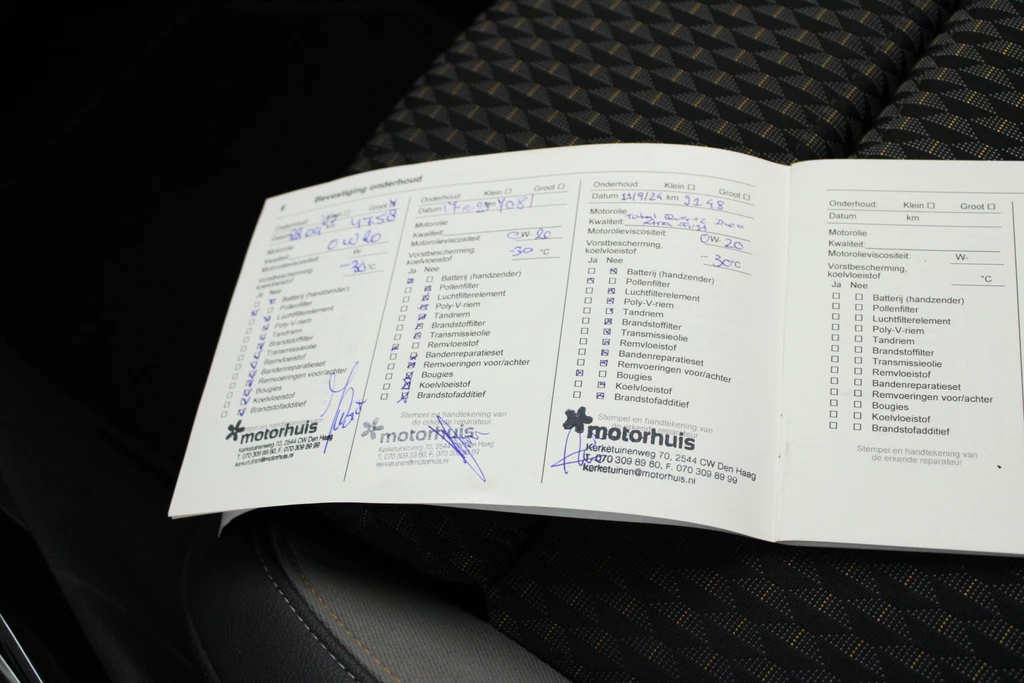 6 Bevestiging onderhoud
Onderhoud: Klein Groot
Datum km
Motorolie
Kwaliteit:
Motorolieviscositeit: W-
0W20
Vorstbescherming,
koelvloeistof -30 °C
Ja Nee
Batterij (handzender)
Pollenfilter
Luchtfilterelement
Poly-V-riem
Tandriem
Brandstoffilter
Transmissieolie
Remvloeistof
Bandenreparatieset
Remvoeringen voor/achter
Bougies
Koelvloeistof
Brandstofadditief
motorhuis
Kerketuinenweg 70, 2544 CW Den Haag
T. 070 309 89 80, F. 070 309 89 99
kerketuinen@motorhuis.nl
Onderhoud: Klein Groot
Datum km
Motorolie:
Kwaliteit:
Motorolieviscositeit: 0W-20
Vorstbescherming,
koelvloeistof -30 °C
Ja Nee
Batterij (handzender)
Pollenfilter
Luchtfilterelement
Poly-V-riem
Tandriem
Brandstoffilter
Transmissieolie
Remvloeistof
Bandenreparatieset
Remvoeringen voor/achter
Bougies
Koelvloeistof
Brandstofadditief
Stempel en handtekening van
de erkende reparateur
motorhuis
Kerketuinenweg 70, 2544 CW Den Haag
T. 070 309 89 80, F. 070 309 89 99
kerketuinen@motorhuis.nl
Onderhoud: Klein Groot
Datum 11/9/24 km 2148
Motorolie Total Quartz Ineo
Kwaliteit:
Motorolieviscositeit: 0W-20
Vorstbescherming,
koelvloeistof -30°C
Ja Nee
Batterij (handzender)
Pollenfilter
Luchtfilterelement
Poly-V-riem
Tandriem
Brandstoffilter
Transmissieolie
Remvloeistof
Bandenreparatieset
Remvoeringen voor/achter
Bougies
Koelvloeistof
Brandstofadditief
Stempel en handtekening van
de erkende reparateur
motorhuis
Kerketuinenweg 70, 2544 CW Den Haag
T. 070 309 89 80, F. 070 309 89 99
kerketuinen@motorhuis.nl
Onderhoud: Klein Groot
Datum km
Motorolie
Kwaliteit:
Motorolieviscositeit: W-
Vorstbescherming,
koelvloeistof °C
Ja Nee
Batterij (handzender)
Pollenfilter
Luchtfilterelement
Poly-V-riem
Tandriem
Brandstoffilter
Transmissieolie
Remvloeistof
Bandenreparatieset
Remvoeringen voor/achter
Bougies
Koelvloeistof
Brandstofadditief
Stempel en handtekening van
de erkende reparateur